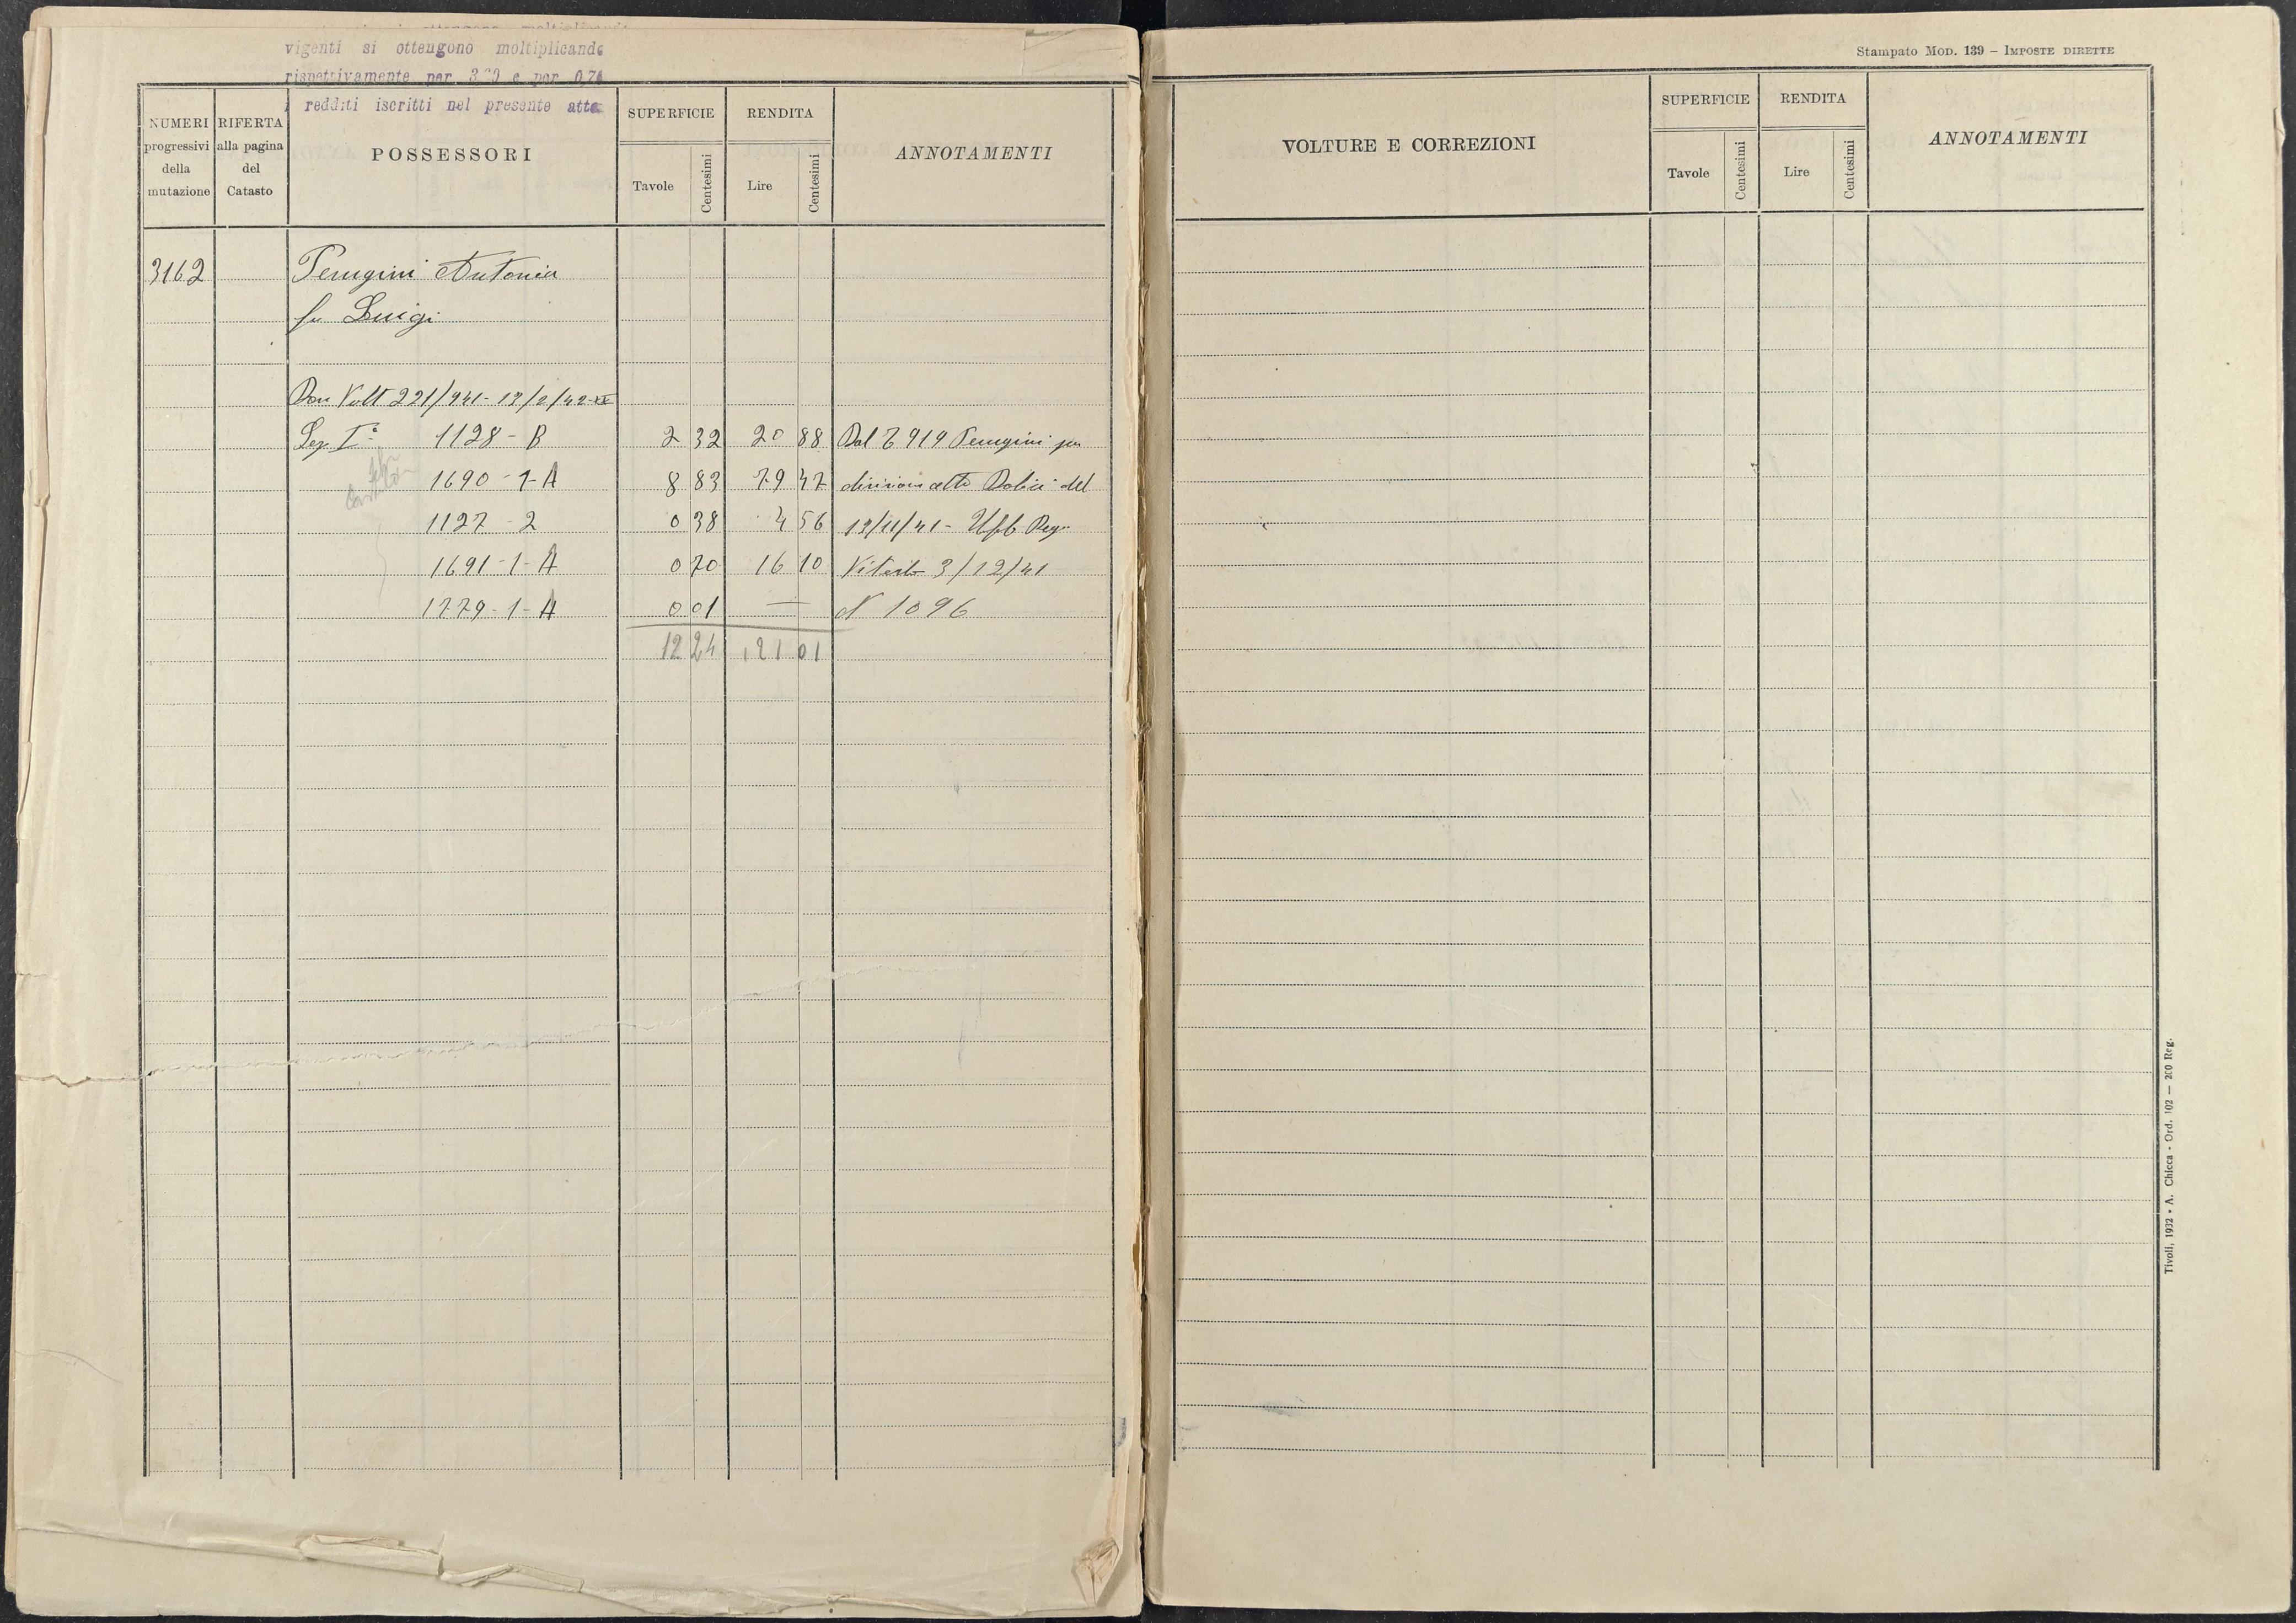 vigenti si ottengono moltiplicando
rispettivamente per e per 0,74
i redditi iscritti nel presente atto
NUMERI progressivi della mutazione
RIFERTA alla pagina del Catasto
POSSESSORI
SUPERFICIE
Tavole
Centesimi
RENDITA
Lire
Centesimi
ANNOTAMENTI
3162 Perugini Antonia
fu Luigi
Don Volt 221/941 - 13/2/42-XX
Sez I° 1128 - B 2 32 20 88 Dal 6919 Perugini per
1690 - 1-A 8 83 79 47 divisione atto Dobici del
1127 - 2 0 38 4 56 12/11/41 - Uff Reg
1691 - 1 - A 0 70 16 10 Viterbo 3/12/41
1779 - 1 - A 0 01 — N 1096
12 24 121 01
Stampato Mod. 139 – Imposte dirette
VOLTURE E CORREZIONI
SUPERFICIE
Tavole
Centesimi
RENDITA
Lire
Centesimi
ANNOTAMENTI
Tivoli, 1932 • A. Chicca - Ord. 102 — 200 Reg.